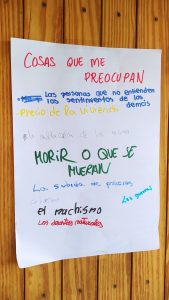 COSAS QUE ME
PREOCUPAN
Las personas que no entienden
los sentimientos de los
demás
-Precio de la vivienda
MORIR O QUE SE
MUERAN
La subida de precios
Las guerras
el machismo
Los desastres naturales